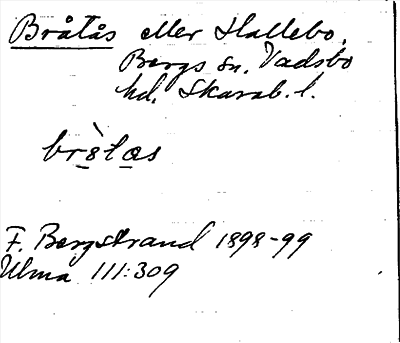 Bråtås eller Hallebo.
Bergs sn. Vadsbo
hd. Skarab. l.
br`ståos
F. Bergstrand 1898-99
Ulma 111:309